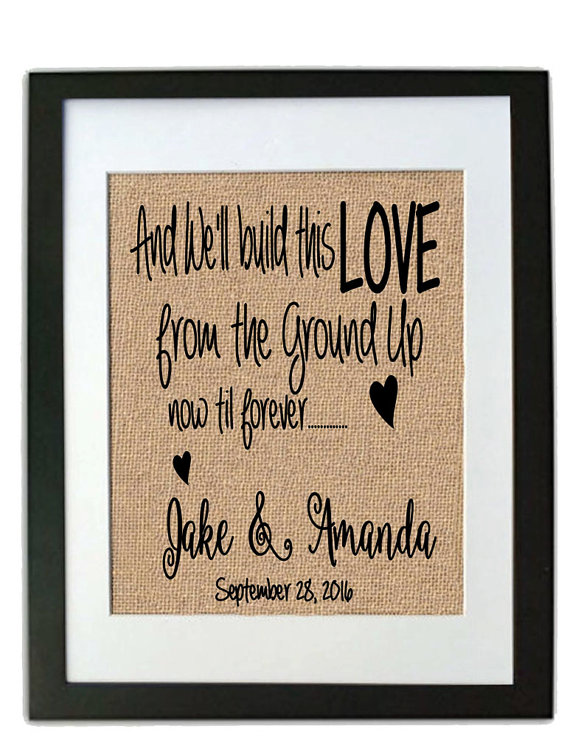 And We'll build this LOVE
from the Ground Up
now til forever.............
Jake & Amanda
September 28, 2016